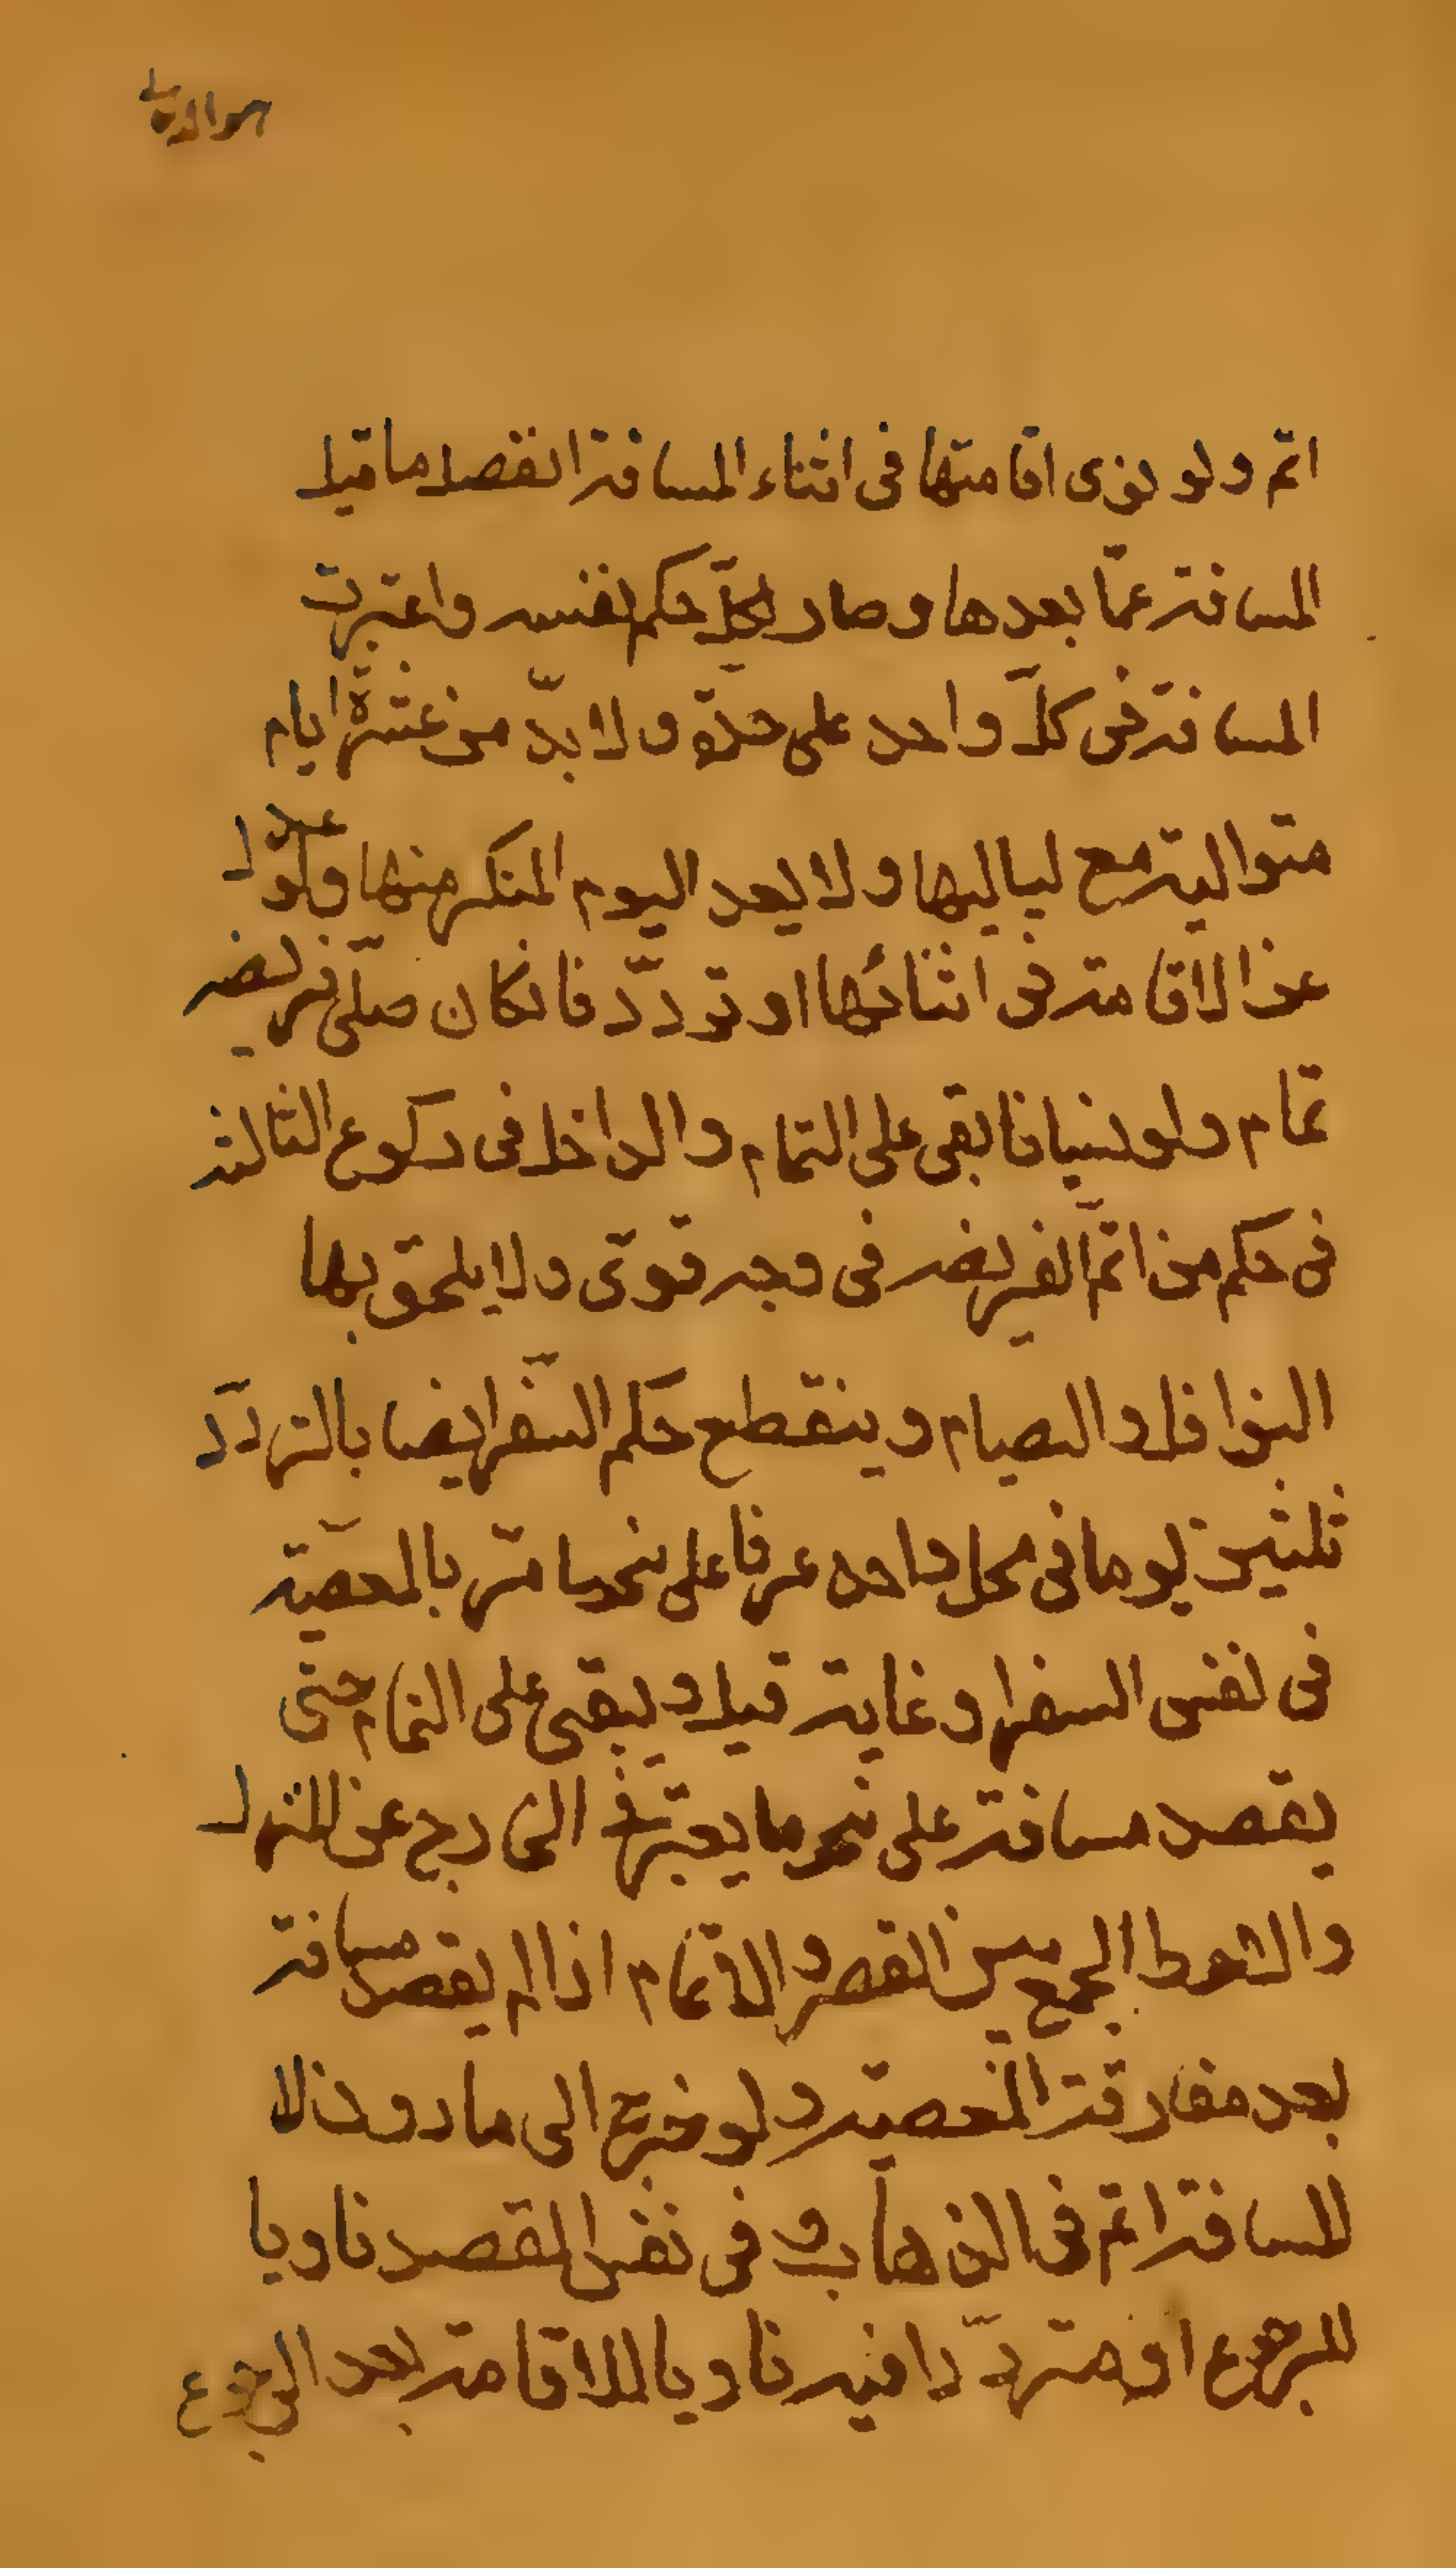 اتم ولو نوى اقامتها فى اثناء المسافة انفصل ما قبل
المسافة عمّا بعدها وصار لكلّ حكم نفسه واعتبرت
المسافة فى كلّ واحد على حدة ولا بدّ من عشرة ايام
متوالية مع لياليها ولا يعد اليوم المنكسر منها ولو عدل
عن الاقامة فى اثنائها او تردّد فانكان صلّى فريضة
تمام ولو نسيانا بقى على التمام والداخل فى ركوع الثالثة
فى حكم من اتمّ الفريضه فى وجه قوى ولا يلحق بها
النوافل والصيام وينقطع حكم السفر ايضا بالتردّد
ثلثين يوما فى محل واحد عرفا على نحو ما مرّ بالمعصية
فى نفس السفر او غايته قيل و يبقى على التمام حتى
يقصد مسافة على نحو ما يعتبر فى الرجوع عن المنزل
والاحوط الجمع بين القصر والاتمام اذا لم يقصد مسافة
بعد مفارقة المعصية ولو خرج الى ما دون
المسافة اتم فى الذهاب و فى نفس المقصد ناويا
للرجوع او متردّدا فيه ناويا للاقامة بعد الرجوع